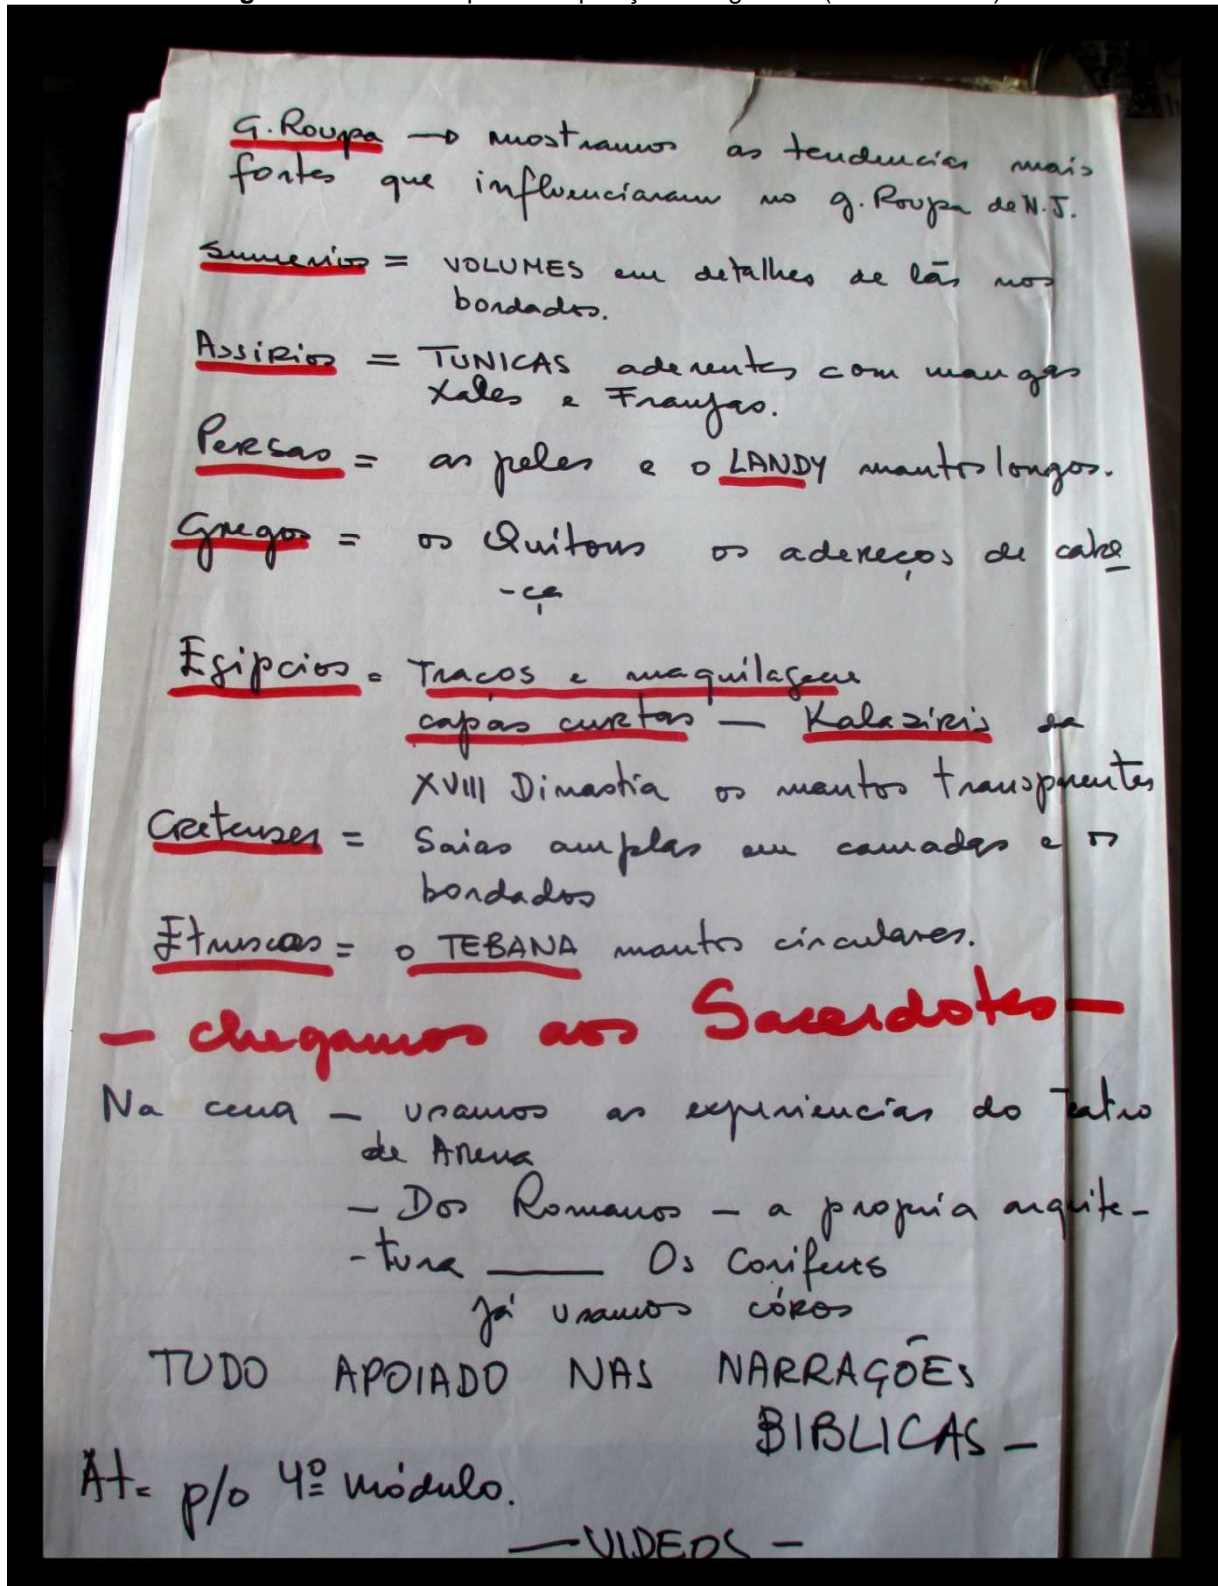 G. Roupa → mostramos as tendencias mais
fortes que influenciaram no g. Roupa de N.J.
Sumerios = VOLUMES em detalhes de lãs nos
bordados.
Assirios = TUNICAS aderentes com mangas
Xales e Franjas.
Persas = as peles e o LANDY mantos longos.
Gregos = os Quitons os adereços de cabe
-ça
Egipcios = Traços e maquilagem
capas curtas — Kalasiris da
XVIII Dinastia os mantos transparentes
Cretenses = Saias amplas em camadas e os
bordados
Etruscos = o TEBANA mantos circulares.
— chegamos aos Sacerdotes —
Na cena — usamos as experiencias do Teatro
de Arena
— Dos Romanos — a propria arquite-
-tura —— Os Corifeus
já usamos córos
TUDO APOIADO NAS NARRAÇÕES
BIBLICAS —
At= p/o 4º módulo.
— VIDEOS —